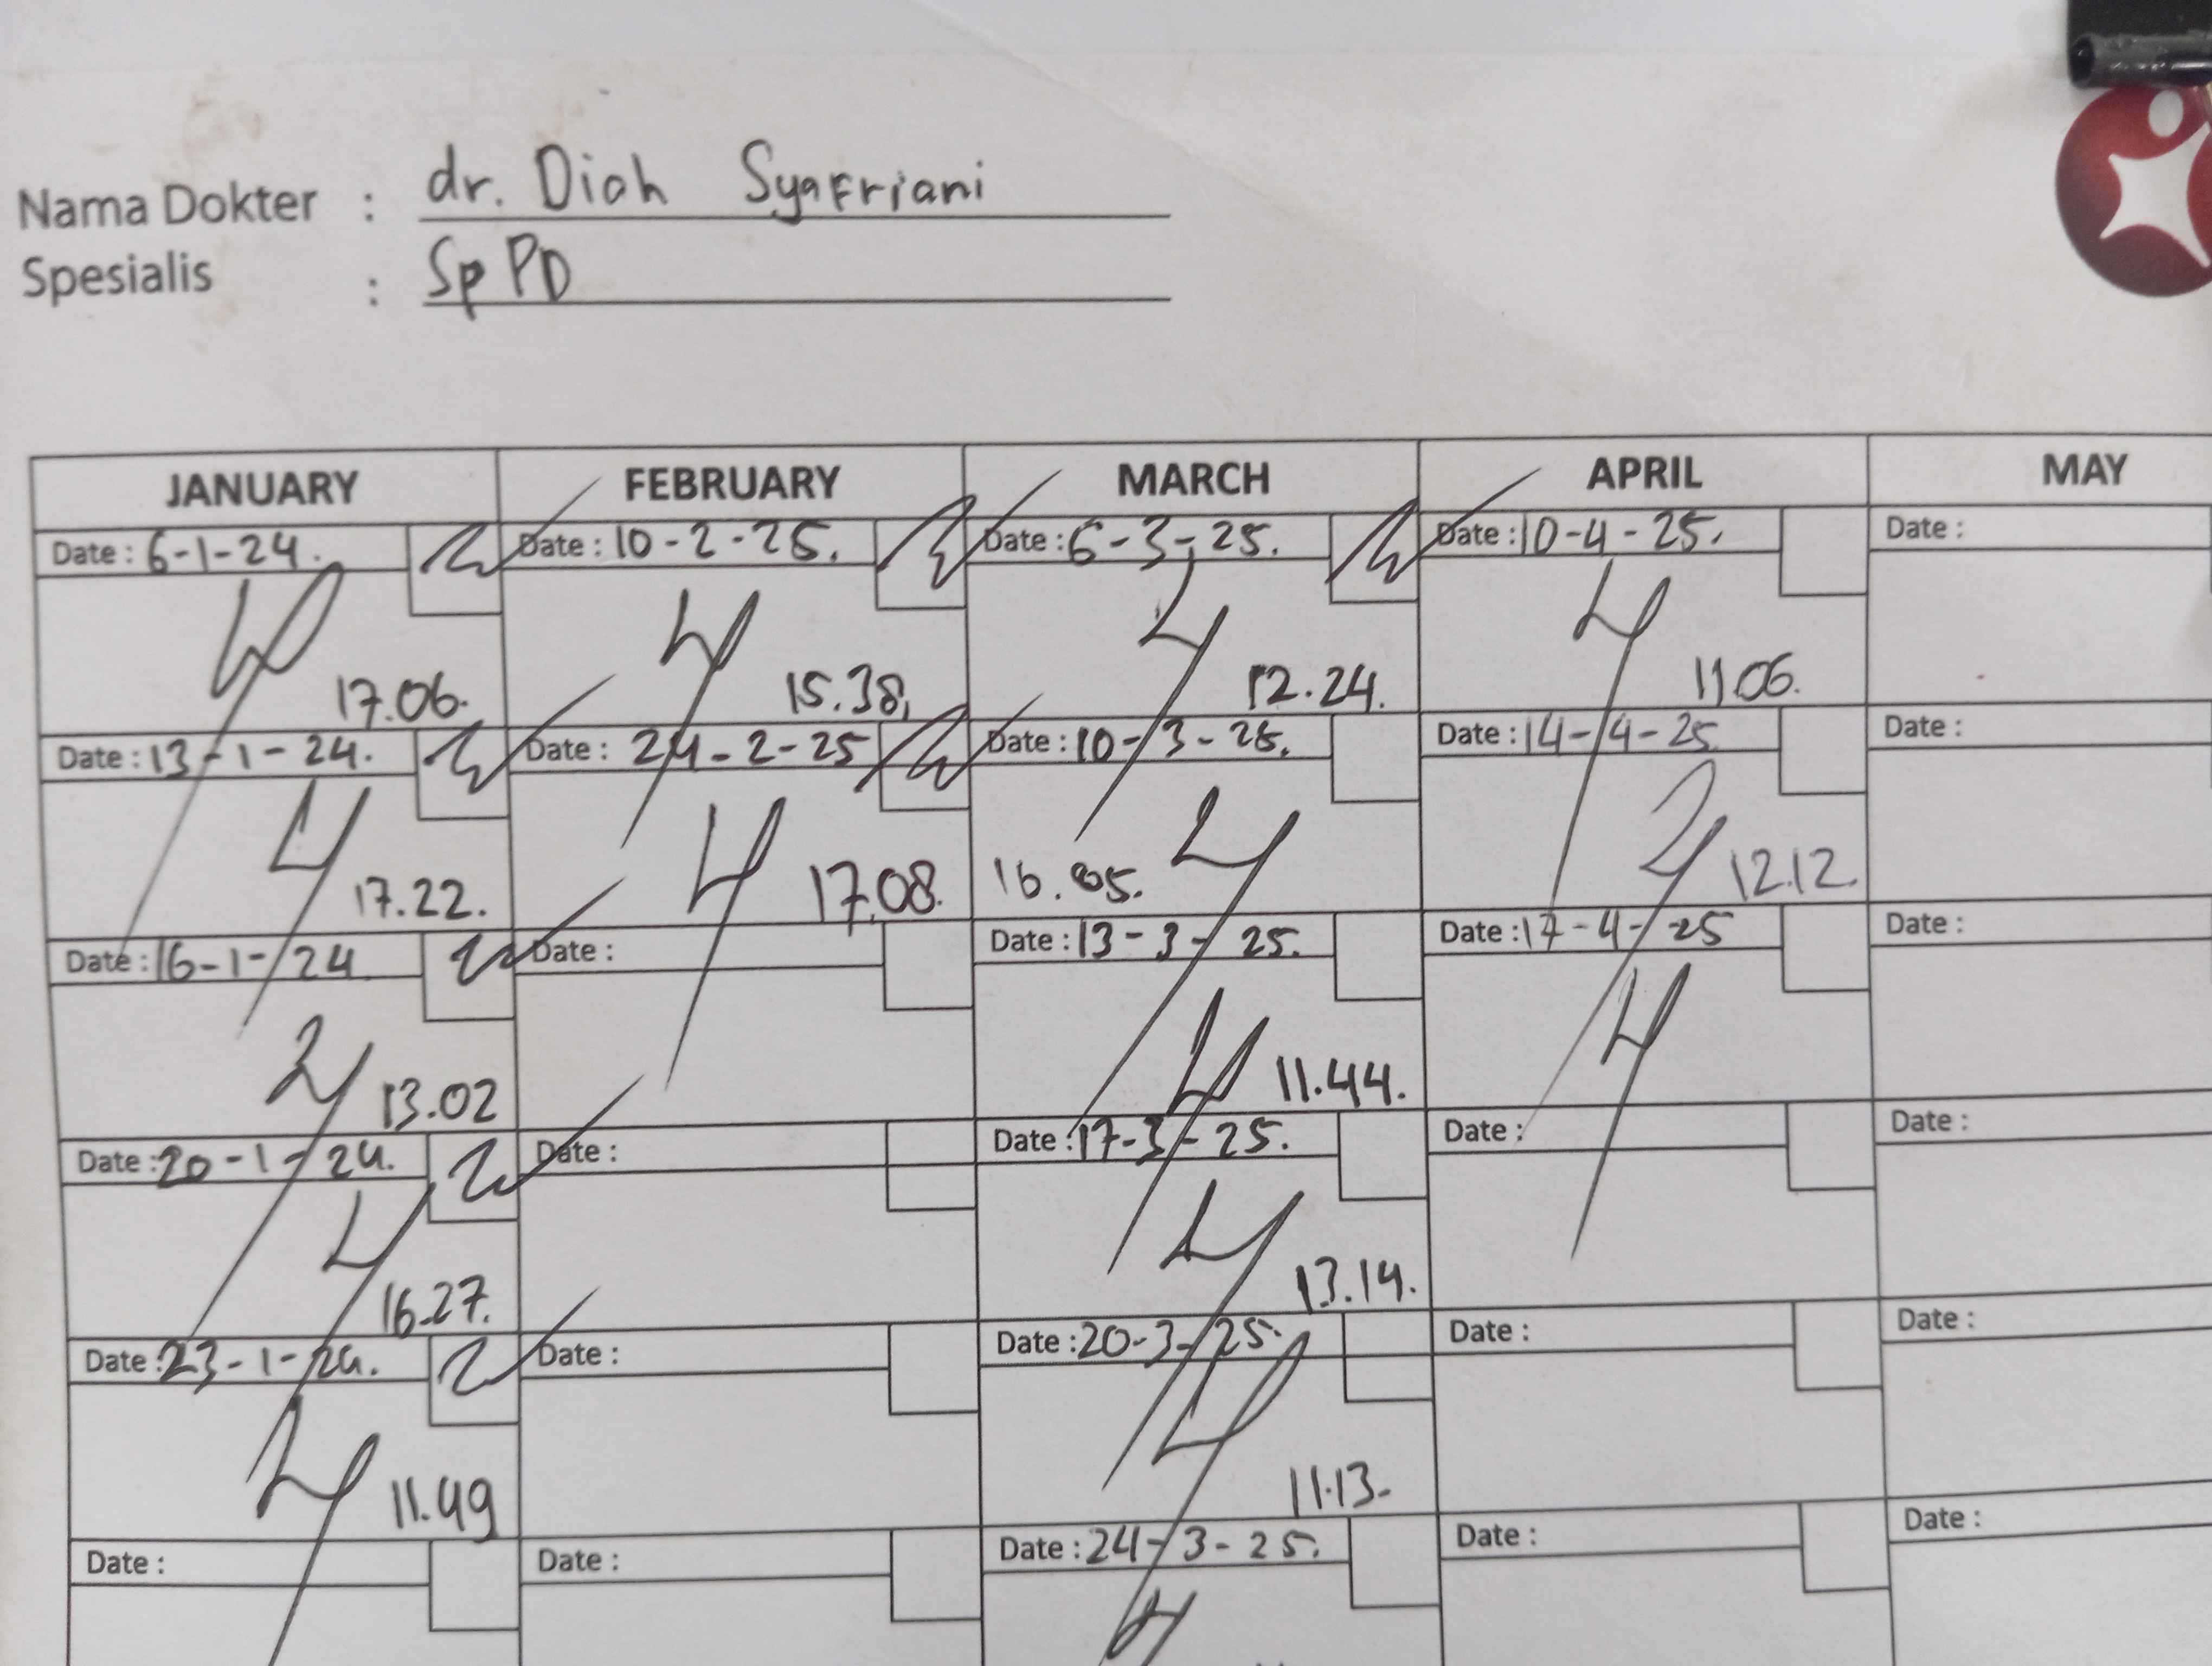 Nama Dokter : dr. Diah Syafriani
Spesialis : Sp PD
JANUARY FEBRUARY MARCH APRIL MAY
Date : 6-1-24. Date : 10-2-25. Date : 6-3-25. Date : 10-4-25. Date :
17.06. 15.38. 12.24. 11.06.
Date : 13-1-24. Date : 24-2-25 Date : 10-3-25. Date : 14-4-25 Date :
17.22. 17.08. 16.05. 12.12.
Date : 16-1-24 Date : Date : 13-3-25. Date : 17-4-25 Date :
13.02 11.44.
Date : 20-1-24. Date : Date : 17-3-25. Date : Date :
16.27. 13.14.
Date : 23-1-24. Date : Date : 20-3-25. Date : Date :
11.49 11.13.
Date : Date : Date : 24-3-25. Date : Date :